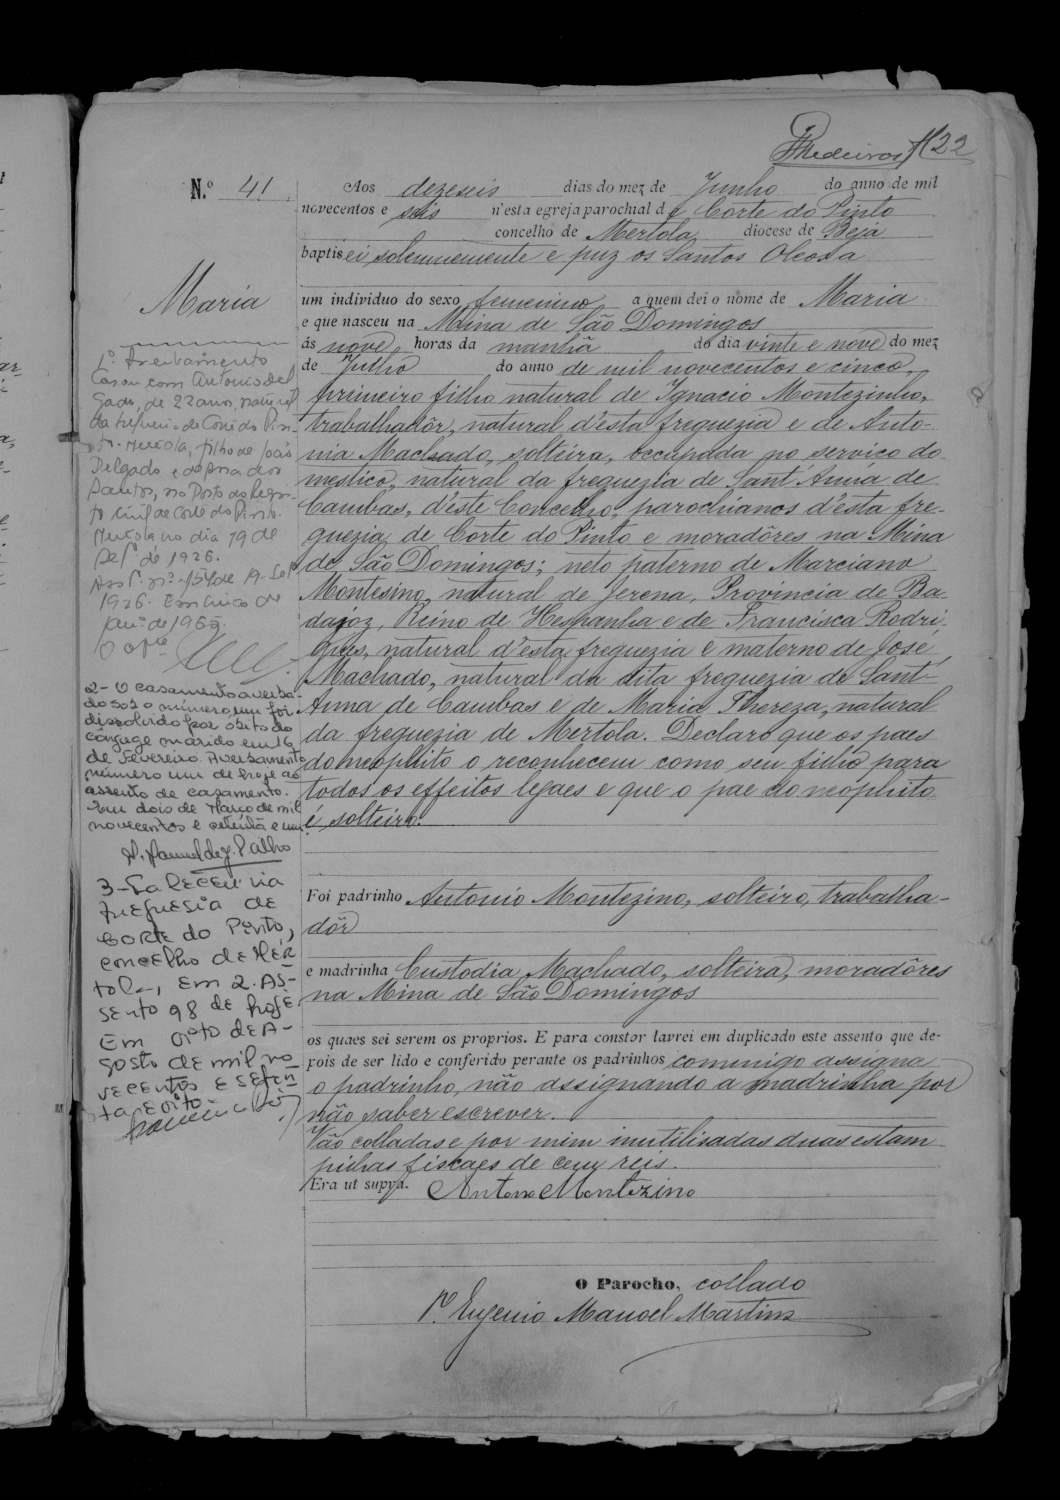 Medeiros 22
N.º 41
Aos dezeseis dias do mez de Junho do anno de mil
novecentos e seis n'esta egreja parochial de Corte do Pinto
concelho de Mertola diocese de Beja
baptisei solemnemente e puz os Santos Oleos a
um individuo do sexo femenino a quem dei o nome de Maria
e que nasceu na Mina de São Domingos
ás nove horas da manhã do dia vinte e nove do mez
de Julho do anno de mil novecentos e cinco,
primeiro filho natural de Ignacio Montezinho,
trabalhadôr, natural d'ésta freguezia e de Anto-
nia Machado, solteira, occupada no serviço do-
mestico, natural da freguezia de Sant'Anna de
Cambas, d'éste Concelho, parochianos d'ésta fre-
guezia de Corte do Pinto e moradôres na Mina
de São Domingos; neto paterno de Marciano
Montesino, natural de Jerena, Provincia de Ba-
dajoz, Reino de Hespanha e de Francisca Rodri-
gues, natural d'esta freguezia e materno de José
Machado, natural da dita freguezia de Sant'
Anna de Cambas e de Maria Thereza, natural
da freguezia de Mertola. Declaro que os paes
do neophito o reconhecem como seu filho para
todos os effeitos legaes e que o pae do neophito
é solteiro.
Foi padrinho Antonio Montezino, solteiro, trabalha-
dôr
e madrinha Custodia Machado, solteira, moradôres
na Mina de São Domingos
os quaes sei serem os proprios. E para constar lavrei em duplicado este assento que de-
pois de ser lido e conferido perante os padrinhos commigo assigna
o padrinho, não assignando a madrinha por
não saber escrever.
Vão colladas e por mim inutilisadas duas estam-
pilhas fiscaes de cem reis.
Era ut supra. Antonio Montezino
O Parocho, collado
P.e Eugenio Manoel Martins
Maria
1.º Averbamento
Casou com Antonio Del
gado, de 22 anos, natural
da freguesia de Corte do Pin-
to, Mertola, filho de João
Delgado e de
Santos, no Posto do Regis-
to Civil de Corte do Pinto.
Mertola no dia 19 de
Set.º de 1926.
Ass.º n.º 154 de 19 Set.º
1926. Em cinco de
Jan.º de 1969.
2- O casamento averba-
do sob o número um foi
dissolvido por óbito do
cônjuge marido em 16
de Fevereiro. Averbamento
número um de hoje ao
assento de casamento.
Em dois de Março de mil
novecentos e setenta e um.
3-Faleceu na
freguesia de
Corte do Pinto,
concelho de Mér
tola, em 2. As-
sento 98 de hoje.
Em oito de A-
gosto de mil no
vecentos e seten
ta e oito.